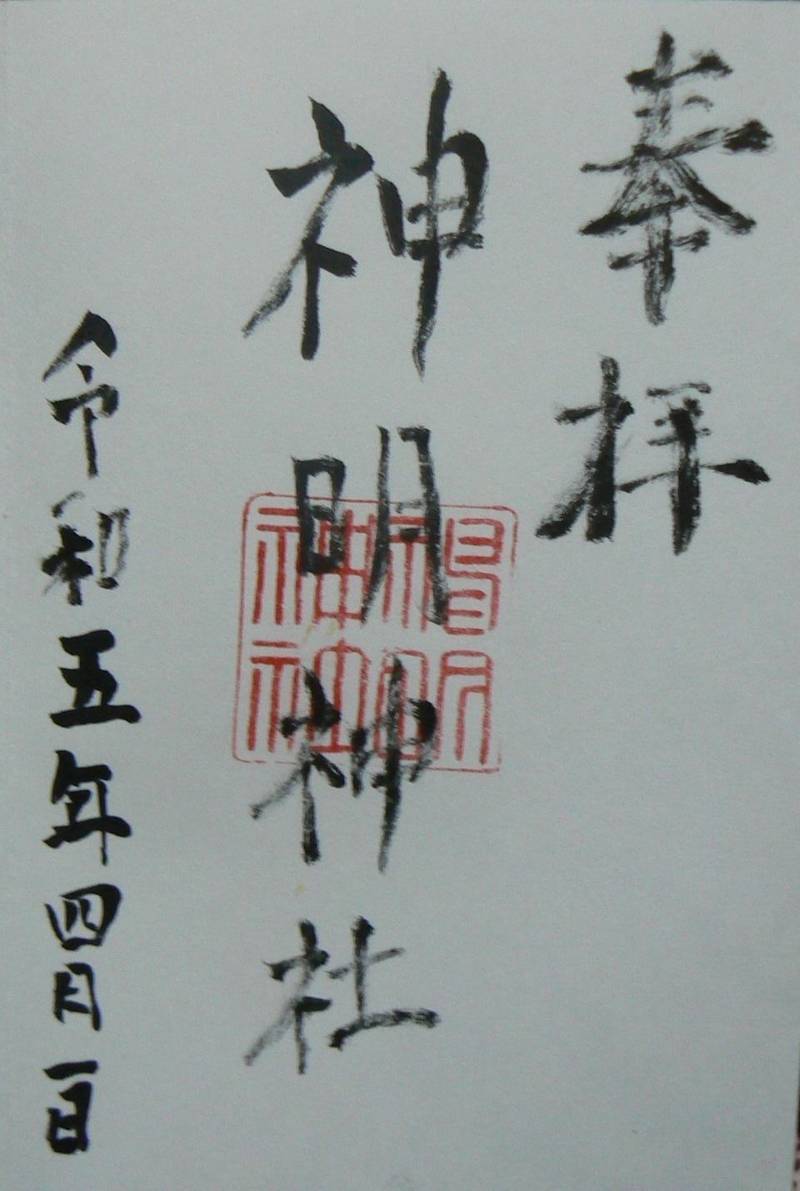 奉拝
神明神社
神明
神社
令和五年四月一日